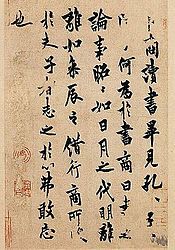 卜商讀書畢見孔子
何為於書商曰書之
論事昭昭如日月之代明離
離如參辰之錯行商所
於夫子者志之於心弗敢忘
也